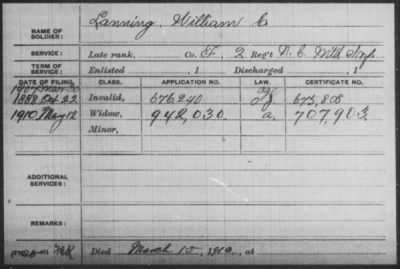 NAME OF SOLDIER: Lanning, William C
SERVICE: Late rank, Co. F, 2 Reg't N.C. Mtd Inf.
TERM OF SERVICE: Enlisted , 1 Discharged , 1
DATE OF FILING. CLASS. APPLICATION NO. LAW. CERTIFICATE NO.
1907
1888 Oct 22 Invalid, 676240 675,808
1910 May 12 Widow, 942,030. a. 707,903
Minor,
ADDITIONAL SERVICES:
REMARKS:
Died March 15, 1910, at